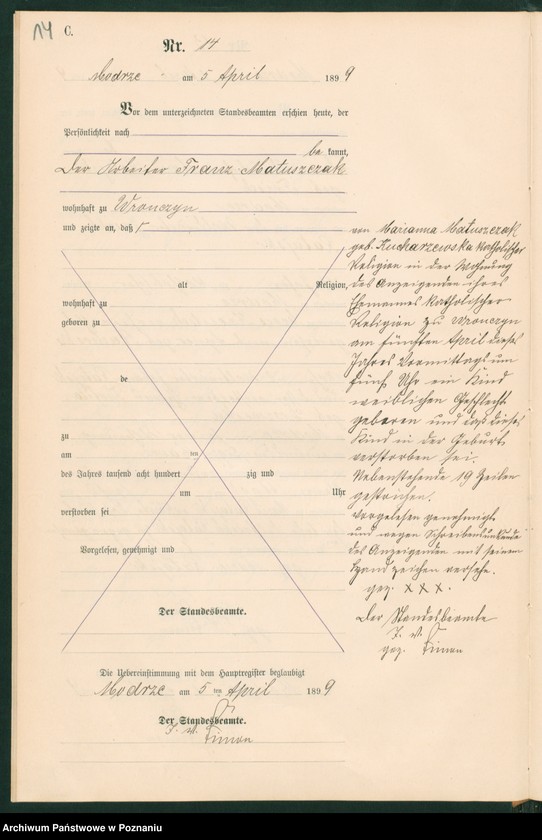 14 C.
Nr. 14
Modrze am 5 April 1899
Vor dem unterzeichneten Standesbeamten erschien heute, der
Persönlichkeit nach
be kannt,
Der Arbeiter Franz Matuszczak
wohnhaft zu Wronczyn
und zeigte an, daß
von Marianna Matuszczak
geb. Kucharzewska katholischer
Religion in der Wohnung
des Anzeigenden ihres
Ehemannes katholischer
Religion zu Wronczyn
am fünften April dieses
Jahres Vormittags um
fünf Uhr ein Kind
weiblichen Geschlechts
geboren und daß dieses
Kind in der Geburt
verstorben sei.
Nebenstehende 19 Zeilen
gestrichen.
Vorgelesen genehmigt
und wegen Schreibensunkunde
des Anzeigenden mit seinem
Handzeichen versehn.
gez. XXX.
Der Standesbeamte
I. V.
gez. Simon
alt Religion,
wohnhaft zu
geboren zu
de
zu
am ten
des Jahres tausend acht hundert zig und
um Uhr
verstorben sei
Vorgelesen, genehmigt und
Der Standesbeamte.
Die Uebereinstimmung mit dem Hauptregister beglaubigt
Modrze am 5 ten April 1899
Der Standesbeamte.
I. V.
Simon
Archiwum Państwowe w Poznaniu